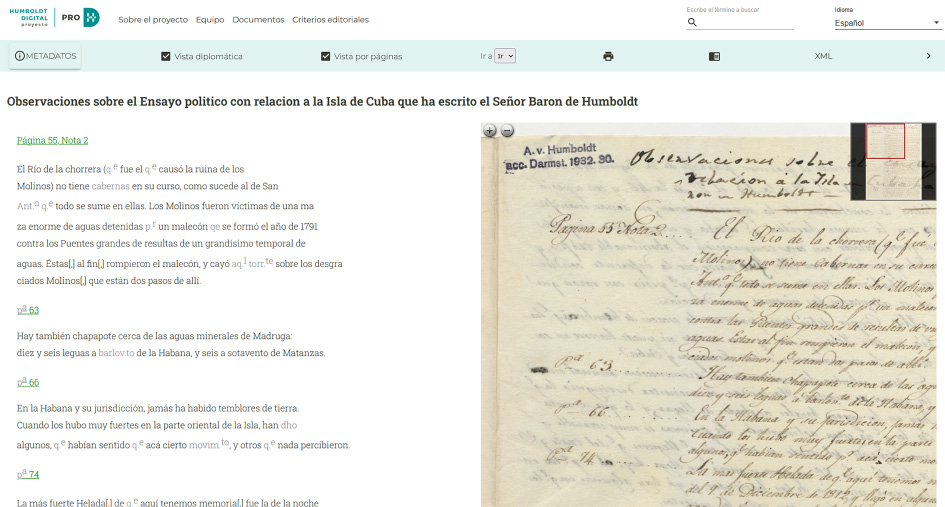 HUMBOLDT
DIGITAL
proyecto
PRO D H
Sobre el proyecto Equipo Documentos Criterios editoriales
Escribe el término a buscar
Idioma
Español
METADATOS
Vista diplomática
Vista por páginas
Ir a 1r
XML
Observaciones sobre el Ensayo politico con relacion a la Isla de Cuba que ha escrito el Señor Baron de Humboldt
Página 55, Nota 2
El Río de la chorrera (q.e fue el q.e causó la ruina de los
Molinos) no tiene cabernas en su curso, como sucede al de San
Ant.o q.e todo se sume en ellas. Los Molinos fueron víctimas de una ma
za enorme de aguas detenidas p.r un malecón qe se formó el año de 1791
contra los Puentes grandes de resultas de un grandísimo temporal de
aguas. Éstas[,] al fin[,] rompieron el malecón, y cayó aq.l torr.te sobre los desgra
ciados Molinos[,] que están dos pasos de allí.
pa 63
Hay también chapapote cerca de las aguas minerales de Madruga:
diez y seis leguas a barlov.to de la Habana, y seis a sotavento de Matanzas.
pa 66
En la Habana y su jurisdicción, jamás ha habido temblores de tierra.
Cuando los hubo muy fuertes en la parte oriental de la Isla, han dho
algunos, q.e habían sentido q.e acá cierto movim.to, y otros q.e nada percibieron.
pa 74
La más fuerte Helada[,] de q.e aquí tenemos memoria[,] fue la de la noche
A. v. Humboldt
acc. Darmst. 1932. 30.
Observaciones sobre el
relacion á la Isla
Humboldt
Pagina 55 Nota 2.... El Rio de la chorrera (q.e fue
Molinos) no tiene cabernas en su curso
Ant.o q.e todo se sume en ellas. Los Molinos
za enorme de aguas detenidas p.r un malecon
contra los Puentes grandes de resultas de
aguas. Estas al fin rompieron el malecon, y
ciados molinos q.e estan dos pasos de alli.
pa 63.... Hay tambien chapapote cerca de las
diez y seis leguas á barlov.to de la Habana, y
pa 66.... En la Habana y su jurisdiccion, jamas
Cuando los hubo muy fuertes en la parte
algunos, q.e habian sentido p.r acá cierto
pa 74..... La mas fuerte Helada de q.e aqui tenemos
del 9 de Diciembre de 1812, y llegó en algunos